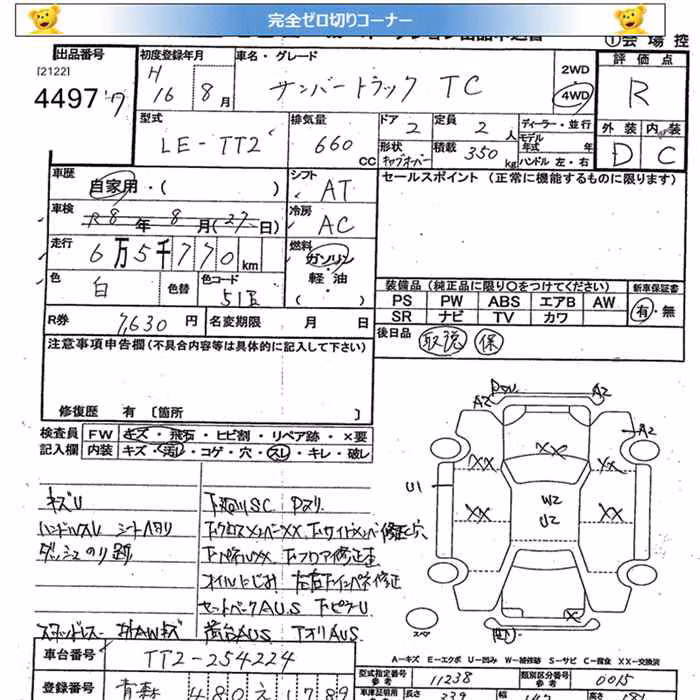 完全ゼロ切りコーナー
①会 場 控
出品番号
[2122]
4497
初度登録年月
H 16 8月
車名・グレード
サンバートラック TC
2WD
4WD
評 価 点
R
型式
LE-TT2
排気量
660 CC
ドア 2
定員 2 人
形状 キャブオーバー
積載 350 kg
ディーラー・並行
モデル
年式 年
ハンドル 左・右
外 装 内 装
D C
車歴
自家用・( )
シフト
AT
セールスポイント (正常に機能するものに限ります)
車検
R8年 8月(27日)
冷房
AC
走行
6万5千770km
燃料
ガソリン
軽 油
( )
色
白
色替
色コード
51E
装備品 (純正品に限り○をつけてください)
新車保証書
PS PW ABS エアB AW
SR ナビ TV カワ
有・無
R券
7,630円
名変期限 月 日
後日品
取説 保
注意事項申告欄(不具合内容等は具体的に記入して下さい)
修復歴 有 [箇所 ]
検査員
記入欄
FW キズ・飛石・ヒビ割・リペア跡・×要
内装 キズ・汚レ・コゲ・穴・スレ・キレ・破レ
A2 A2
A2
XX
XX XX
U1
W2
U2
XX XX
X
スペア
キズU
ハンドルスレ シートヘタリ
ダッシュのり跡
下廻りSC Pスリ
下クロスメンバーXX 下サイドメンバー修正穴
下パネルXX 下フロア修正歪
オイルにじみ 左右下インパネ修正
セットバックAU.S 下ピラーU
荷台AU.S 下オリAU.S
車台番号
TT2-254224
A-キズ E-エクボ U-凹み W-補修跡 S-サビ C-腐食 XX-交換済
型式指定番号
参考
11238
類別区分番号
参考
0015
登録番号
青森 480 え 1789